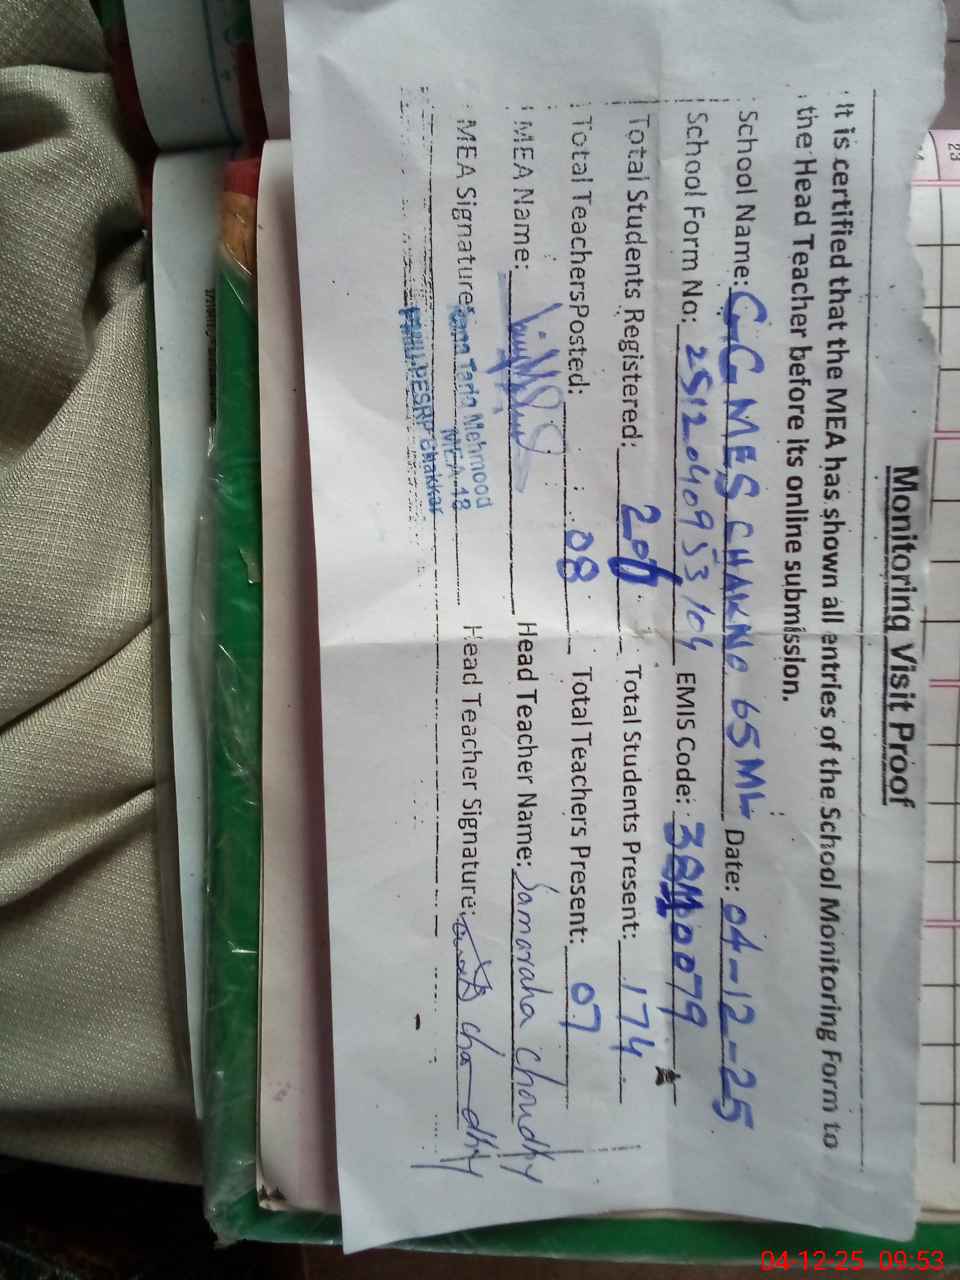 Monitoring Visit Proof
It is certified that the MEA has shown all entries of the School Monitoring Form to
the Head Teacher before its online submission.
School Name: GGMES CHAKNO 65ML Date: 04-12-25
School Form No: 2512040953104 EMIS Code:
Total Students Registered: Total Students Present: 174
Total Teachers Posted: 08 Total Teachers Present: 07
MEA Name: Head Teacher Name: Samaraha Choudhy
MEA Signature: Head Teacher Signature:
Mehmood
MEA-48
PMIU-PESRP
04-12-25 09:53
23